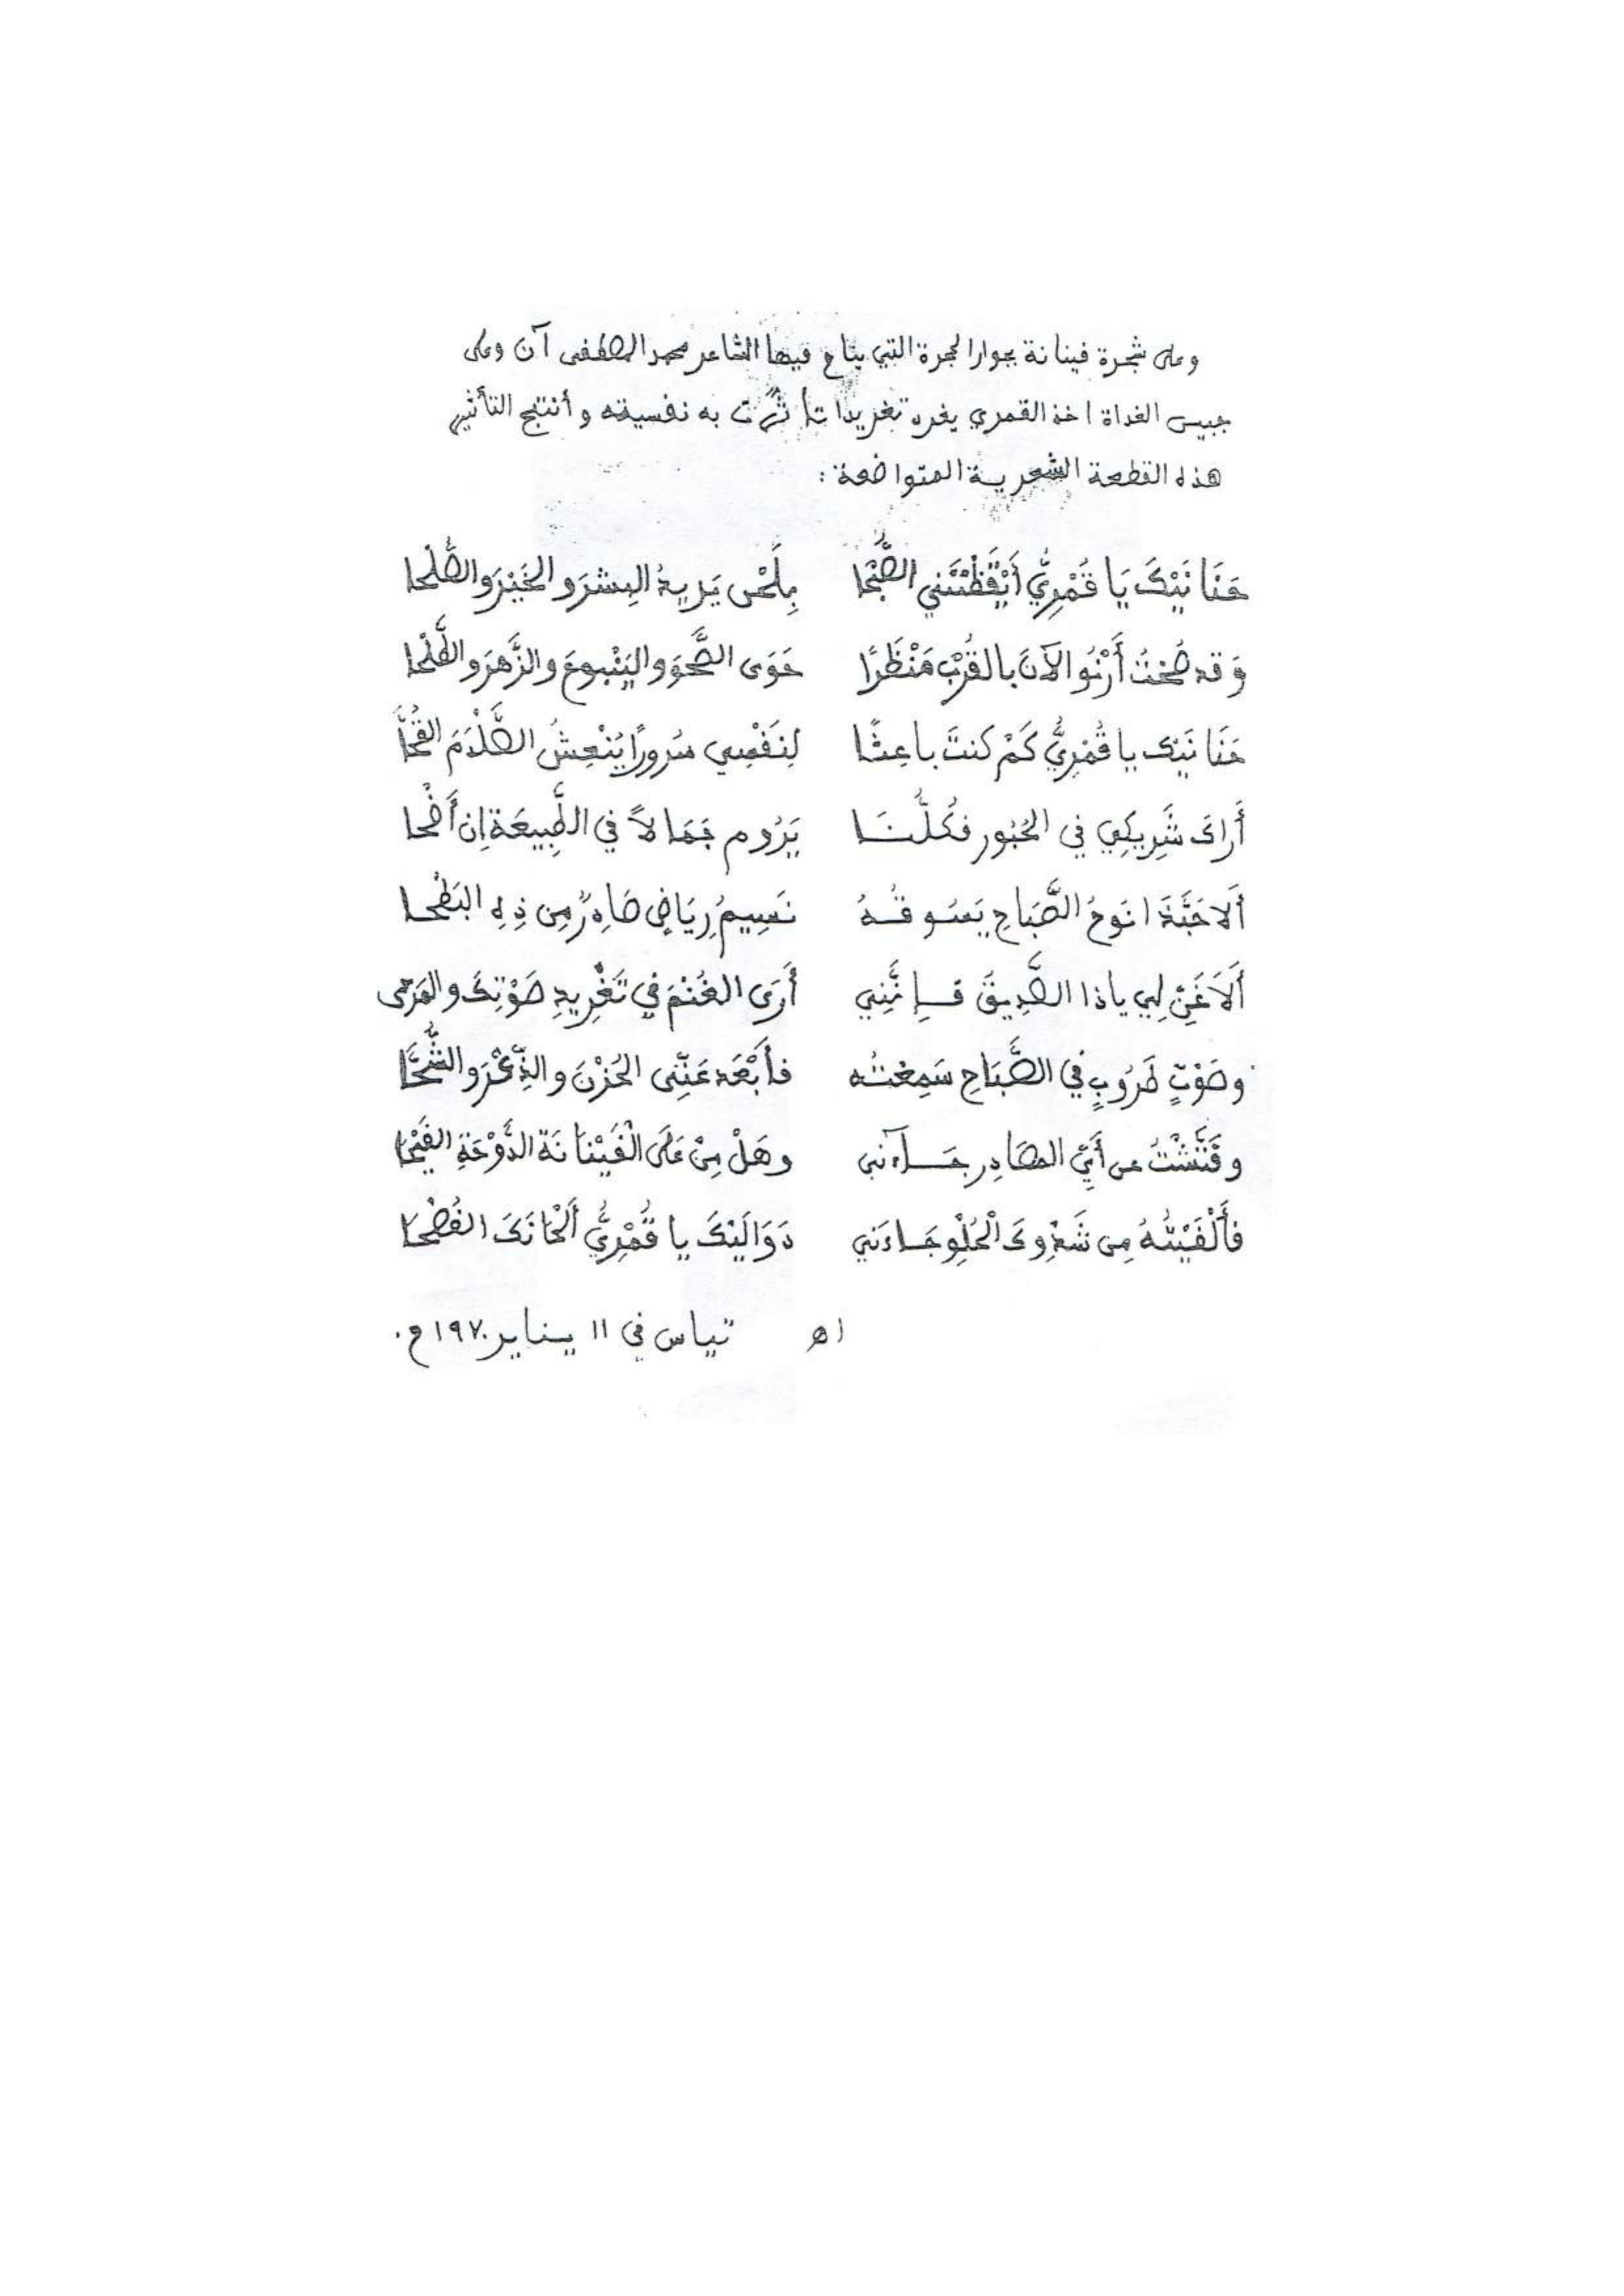 وعلى شجرة فينانة بجوار الحجرة التي ينام فيها الشاعر محمد المصطفى آن وعلى
جبيس الغداة اخذ القمري يغرد تغريدا تأثرت به نفسيته وأنتج التأثير
هذه القطعة الشعرية المتواضعة :
حَنَانَيْكَ يَا قُمْرِيُّ أَيْقَظْتَنِي الصُّبْحَا بِلَحْنٍ يَرِيدُ البِشرَ والخَيْرَ والصُّلْحا
وَقد صُختُ أَرْنُو الآنَ بالقُرْبِ مَنْظَرًا حَوَى الصَّحْوَ واليَنْبوعَ والزَّهرَ والطَّلْحا
حَنَانَيْك يا قُمْرِيُّ كَمْ كنتَ باعِثًا لِنَفْسِي سُرورًا يُنْعِشُ الصَّلْدَمَ القُحَّا
أَراكَ شَرِيكِي في الحُبُور فكُلُّنَا يَرُوم جَمَالاً في الطَّبِيعَة إِن أَضْحا
أَلا حَبَّذَا نَوحُ الصَّبَاحِ يَسُوقُهُ نَسِيمُ رِيَاضٍ صَادِرٌ مِن ذِهِ البَطْحا
أَلاَ غَنِّ لِي ياذا الصَّدِيقَ فإِنَّنِي أَرَى الغُنْمَ في تَغْرِيدِ صَوْتِكَ والمَرْحى
وصَوْتٍ طَرُوبٍ في الصَّبَاحِ سَمِعْتُه فأَبْعَد عَنِّى الحُزْنَ والذُّعْرَ والشُّحَّا
وفَتَّشْتُ عن أَيِّ المصَادِر جَاءَنِي وهَلْ مِنْ عَلَى الْفَيْنَانَة الدَّوْحَةِ الفَيْحَا
فأَلْفَيْتُهُ مِن شَدْوِكَ الْحُلْوِ جَاءَنِي دَوَالَيْكَ يا قُمْرِيُّ أَلْحَانَكَ الفُصْحَا
اه تياس في ١١ يناير ١٩٧٠م.